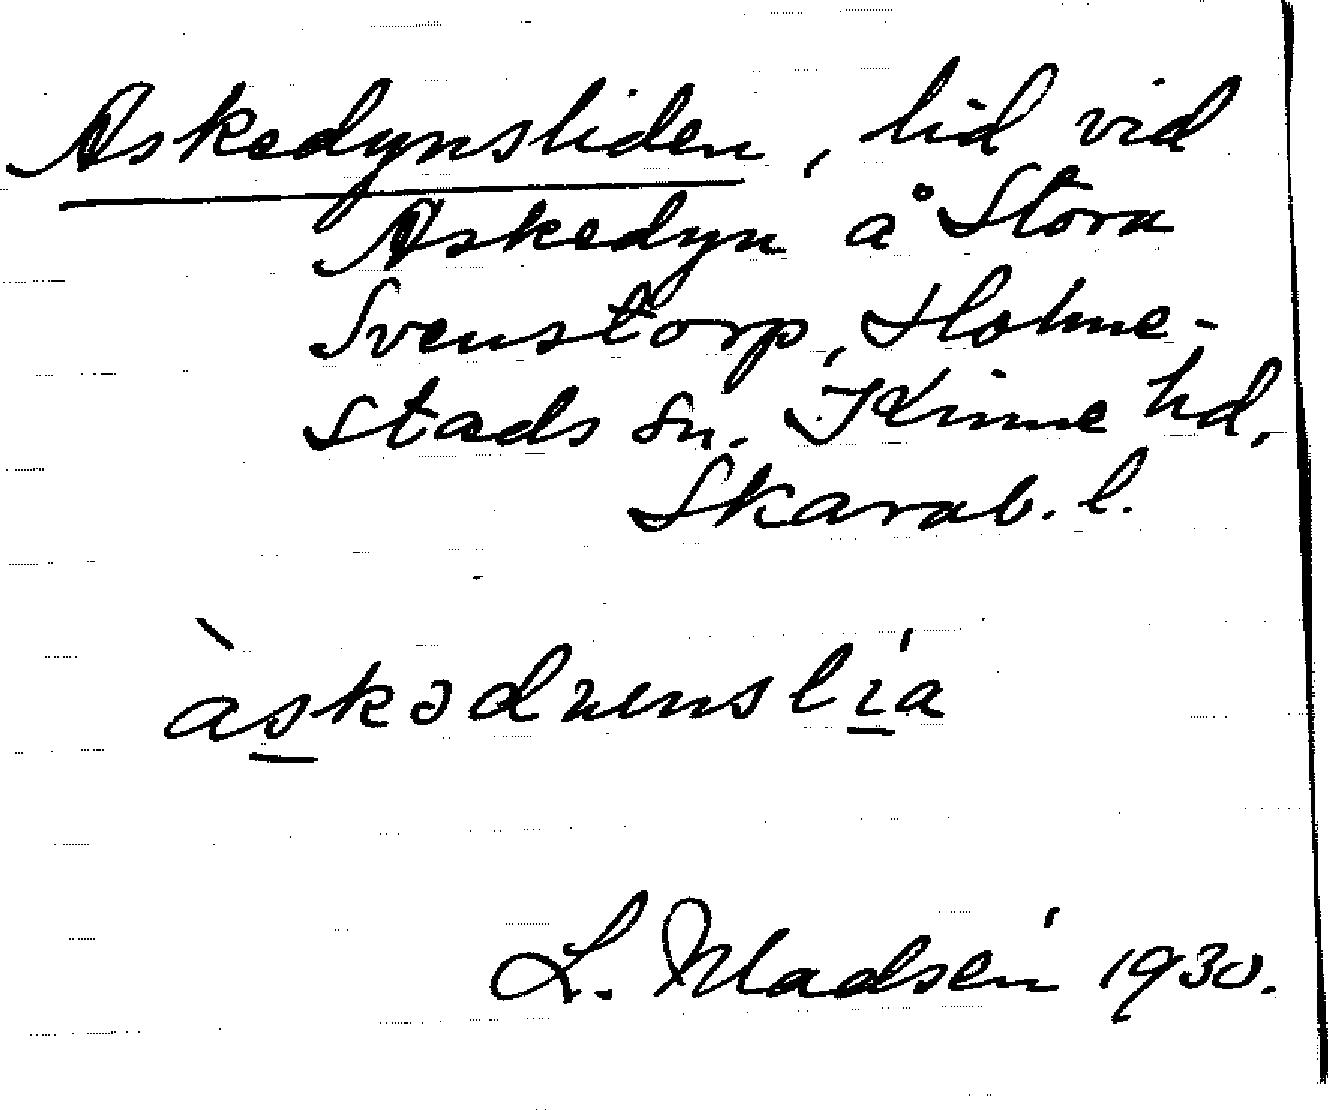 Askedynsliden, lid vid
Askedyn å Stora
Svenstorp, Holme-
stads sn. Kinne hd,
Skarab. l.
àskədnenslí̱a
L. Madsén 1930.